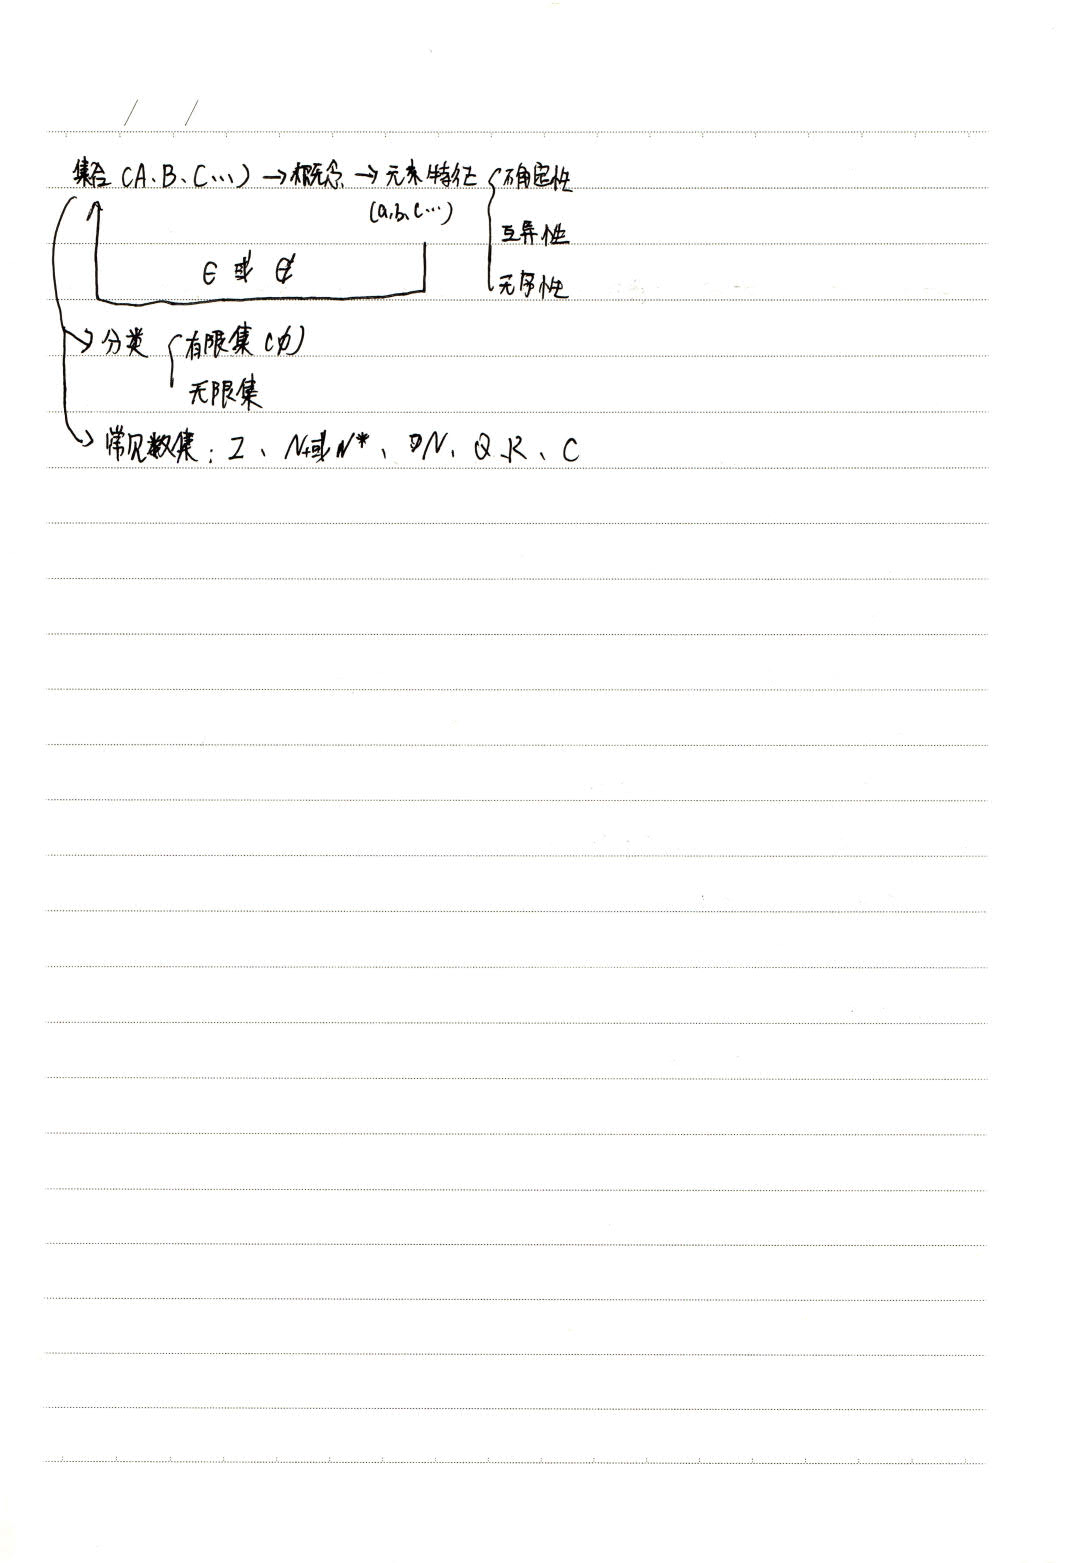 集合(A、B、C…)→概念→元素特征{确定性
(a,b,c…)
互异性
∈ 或 ∉
无序性
分类{有限集(∅)
无限集
常见数集:Z、N+或N*、N、Q、R、C